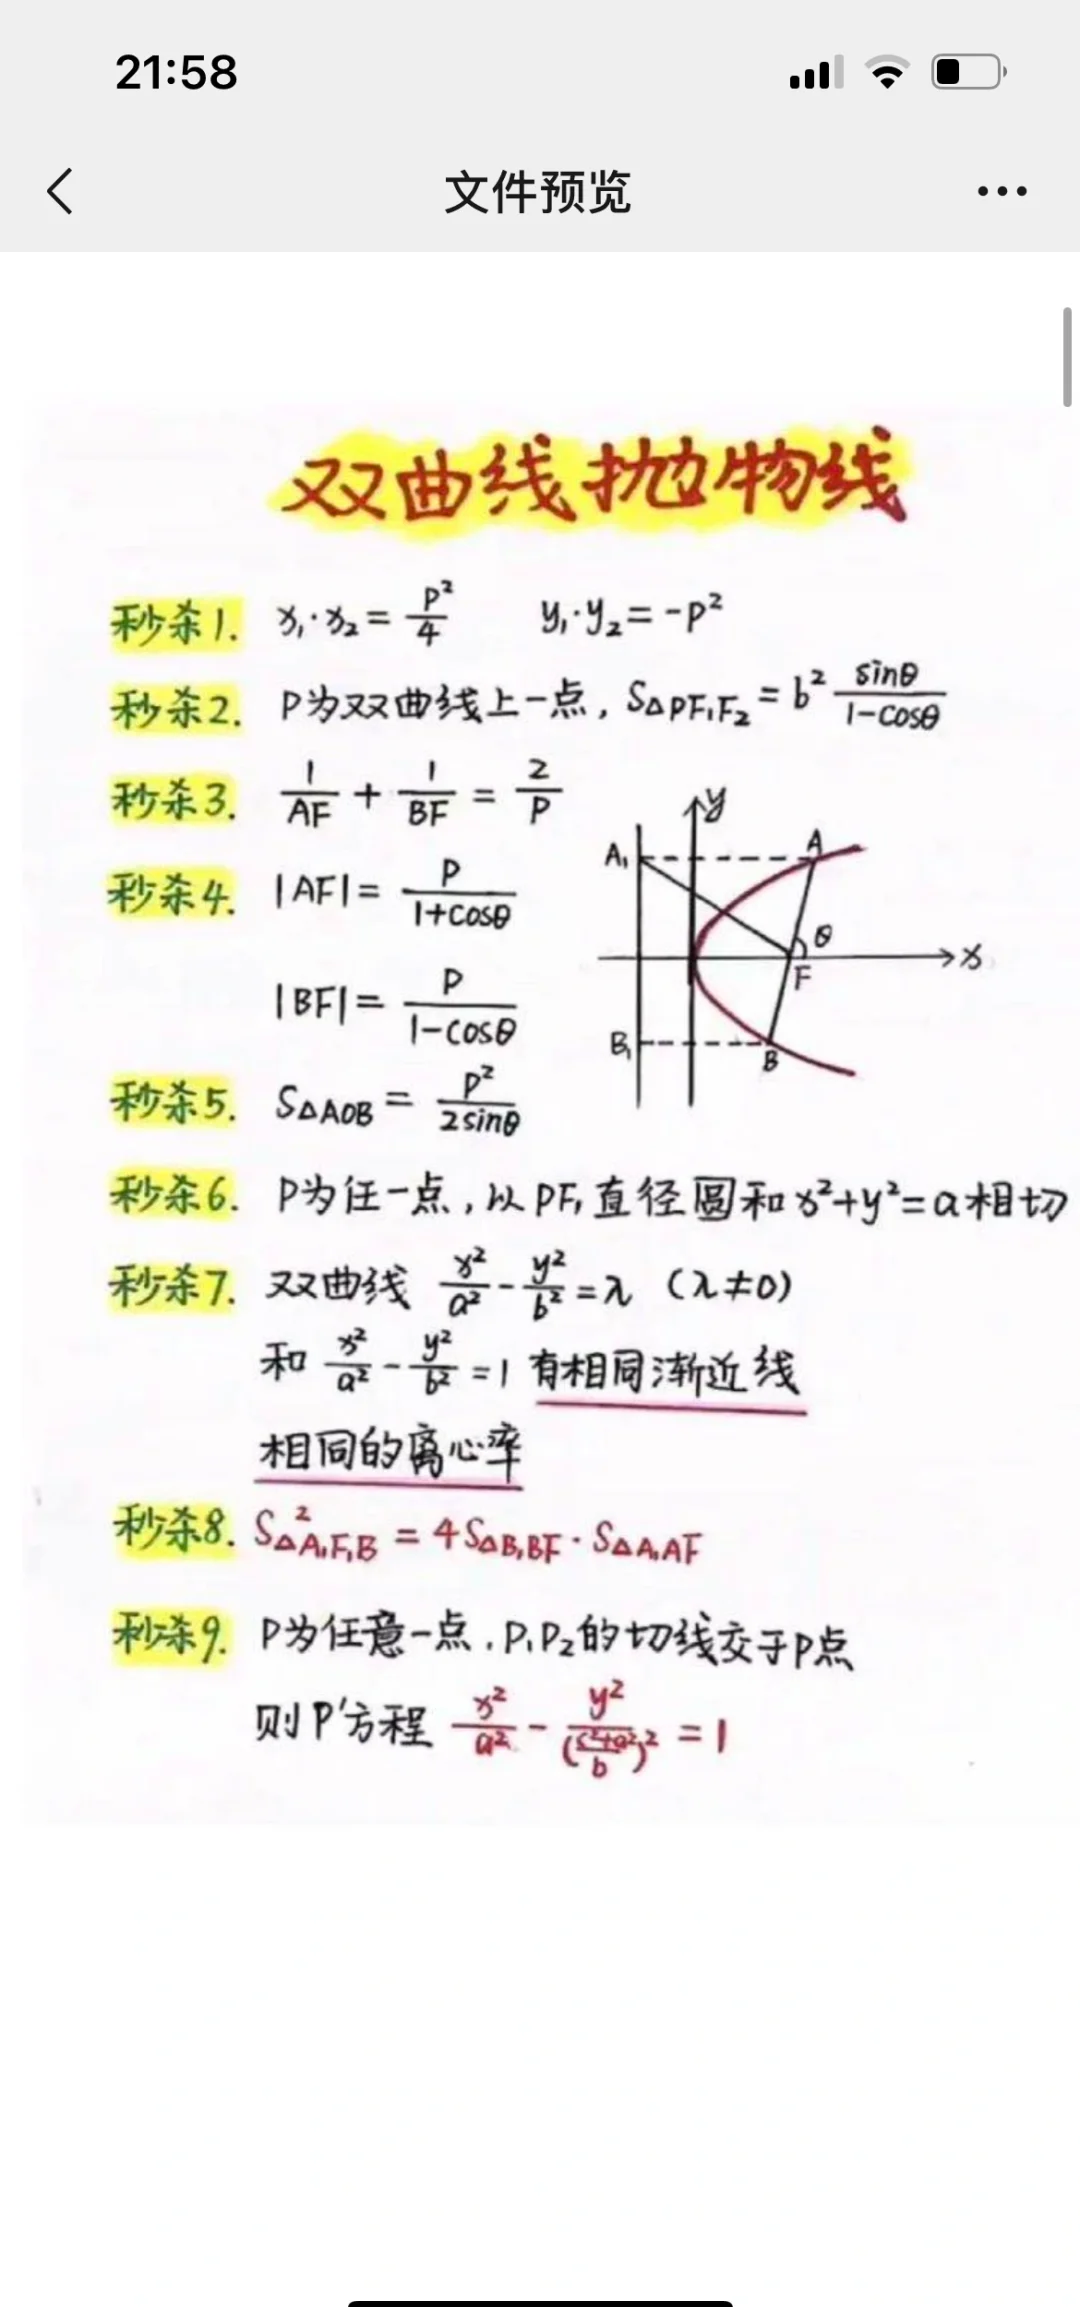 21:58
文件预览
双曲线 抛物线
秒杀1. x₁·x₂ = P²/4 y₁·y₂ = -P²
秒杀2. P为双曲线上一点, S△PF₁F₂ = b² sinθ/(1-cosθ)
秒杀3. 1/AF + 1/BF = 2/P
秒杀4. |AF| = P/(1+cosθ)
|BF| = P/(1-cosθ)
y
A₁
A
θ
x
F
B₁
B
秒杀5. S△AOB = P²/(2sinθ)
秒杀6. P为任一点, 以PF₁直径圆和x²+y²=a相切
秒杀7. 双曲线 x²/a² - y²/b² = λ (λ≠0)
和 x²/a² - y²/b² = 1 有相同渐近线
相同的离心率
秒杀8. S²△A₁F₁B = 4S△B₁BF · S△A₁AF
秒杀9. P为任意一点, P₁P₂的切线交于P点
则P'方程 x²/a² - y²/((c²+a²)/b)² = 1